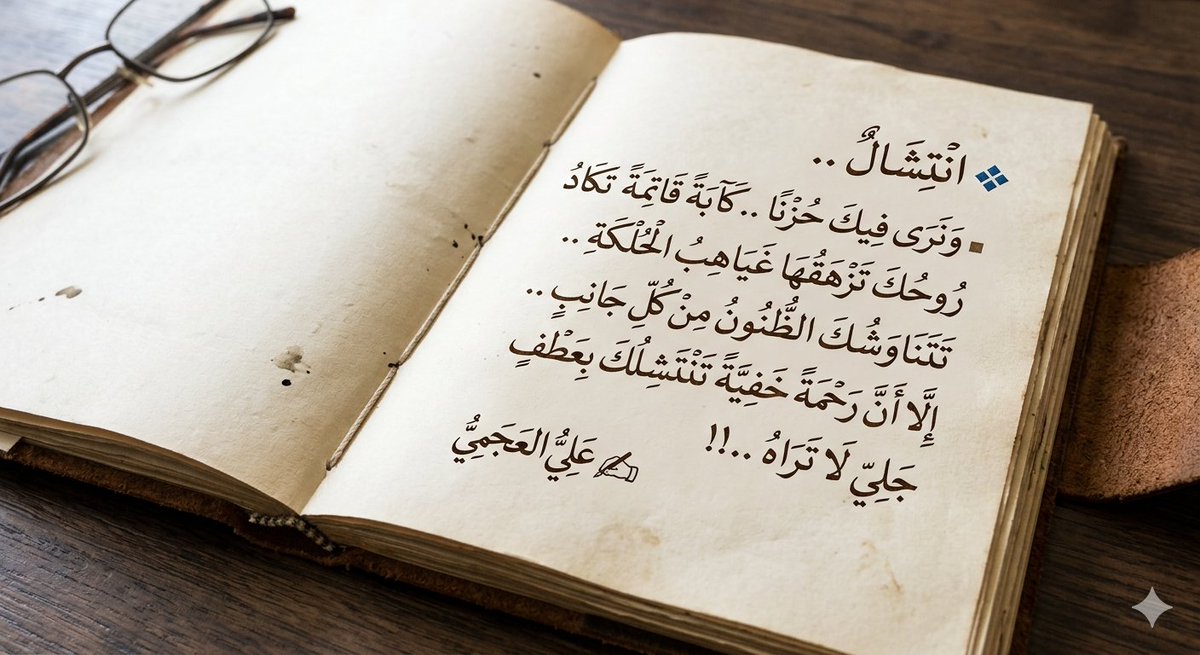 ❖ انْتِشَالٌ ..
▪ وَنَرَى فِيكَ حُزْنًا .. كَآبَةً قَاتِمَةً تَكَادُ
رُوحُكَ تَزْهَقُهَا غَيَاهِبُ الْحُلْكَةِ ..
تَتَنَاوَشُكَ الظُّنُونُ مِنْ كُلِّ جَانِبٍ ..
إِلَّا أَنَّ رَحْمَةً خَفِيَّةً تَنْتَشِلُكَ بِعَطْفٍ
جَلِيّ لَا تَرَاهُ ..!!
✍ عَلِيُّ العَجَمِيُّ